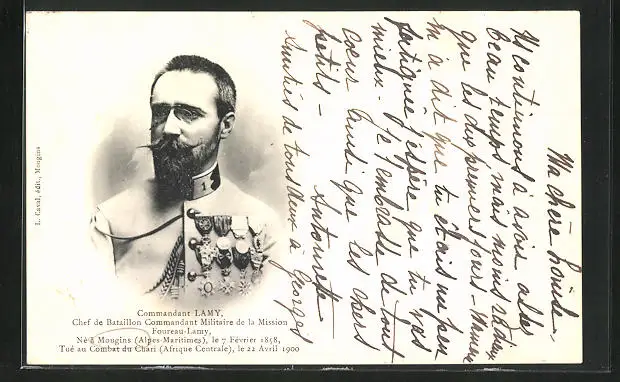 L. Cavai, édit., Mougins
Commandant LAMY,
Chef de Bataillon Commandant Militaire de la Mission
Foureau-Lamy,
Né à Mougins (Alpes-Maritimes), le 7 Février 1858,
Tué au Combat du Chari (Afrique Centrale), le 22 Avril 1900
1
Ma chère Louise -
N continuons à avoir assez
beau temps mais moins
que les dix premiers jours -
m'a dit que tu étais un peu
fatiguée j'espère que tu vas
mieux. Je t'embrasse de tout
coeur ainsi que tes chers
petits - Antoinette
Amitiés de tous deux à Georges